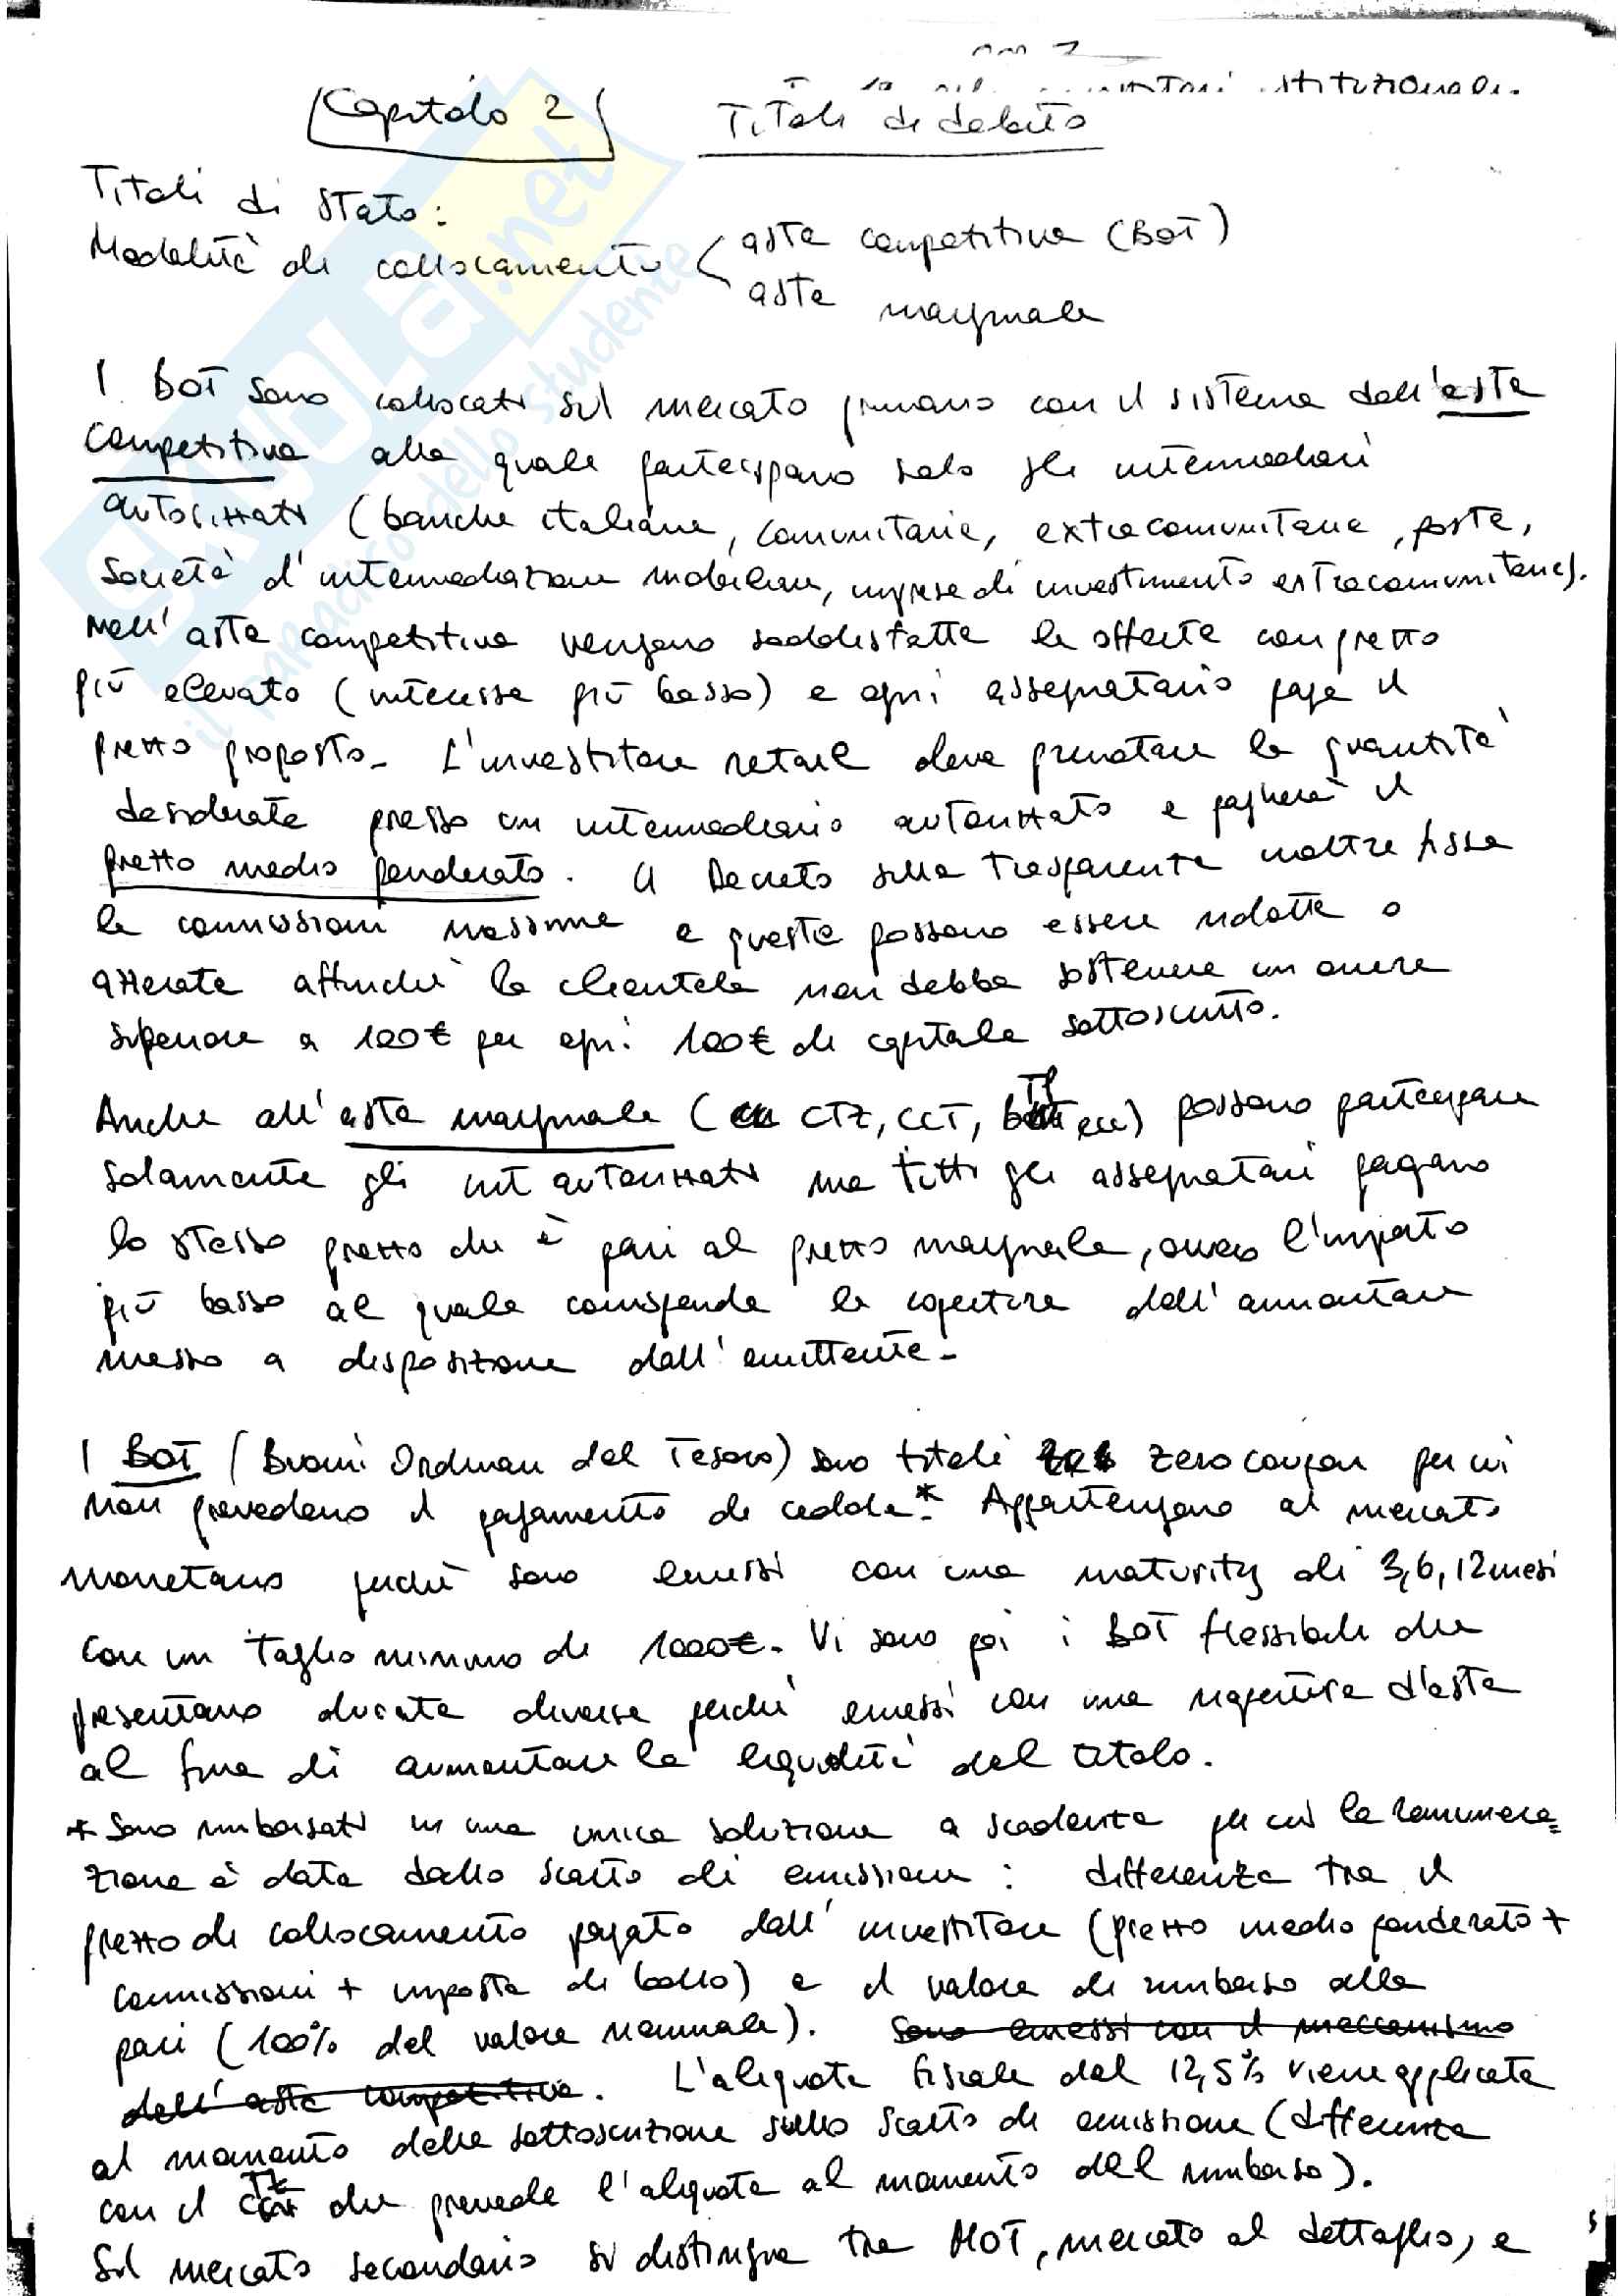 istituzionali.
Capitolo 2 Titoli di debito
Titoli di Stato:
Modalità di collocamento < asta competitiva (BOT)
asta marginale
I BOT sono collocati sul mercato primario con il sistema dell'asta
competitiva alla quale partecipano solo gli intermediari
autorizzati (banche italiane, comunitarie, extracomunitarie, poste,
società d'intermediazione mobiliare, imprese di investimento extracomunitarie).
Nell'asta competitiva vengono soddisfatte le offerte con prezzo
più elevato (interesse più basso) e ogni assegnatario paga il
prezzo proposto. L'investitore retail deve prenotare la quantità
desiderata presso un intermediario autorizzato e pagherà il
prezzo medio ponderato. Il Decreto sulla trasparenza inoltre fissa
le commissioni massime e queste possono essere ridotte o
azzerate affinché la clientela non debba sostenere un onere
superiore a 100€ per ogni 100€ di capitale sottoscritto.
Anche all'asta marginale (CTZ, CCT, BTP, ecc) possono partecipare
solamente gli int autorizzati ma tutti gli assegnatari pagano
lo stesso prezzo che è pari al prezzo marginale, ovvero l'importo
più basso al quale corrisponde la copertura dell'ammontare
messo a disposizione dall'emittente.
I BOT (Buoni Ordinari del Tesoro) sono titoli zero coupon per cui
non prevedono il pagamento di cedole*. Appartengono al mercato
monetario perché sono emessi con una maturity di 3, 6, 12 mesi
con un taglio minimo di 1000€. Vi sono poi i BOT flessibili che
presentano durate diverse perché emessi con una riapertura d'asta
al fine di aumentare la liquidità del titolo.
* Sono rimborsati in una unica soluzione a scadenza per cui la remunera=
zione è data dallo scarto di emissione: differenza tra il
prezzo di collocamento pagato dall'investitore (prezzo medio ponderato +
commissioni + imposta di bollo) e il valore di rimborso alla
pari (100% del valore nominale). Sono emessi con il meccanismo
dell'asta competitiva. L'aliquota fiscale del 12,5% viene applicata
al momento della sottoscrizione sullo scarto di emissione (differenza
con il CTZ che prevede l'aliquota al momento del rimborso).
Sul mercato secondario si distingue tra MOT, mercato al dettaglio, e
SKUOLA.net
il paradiso dello studente